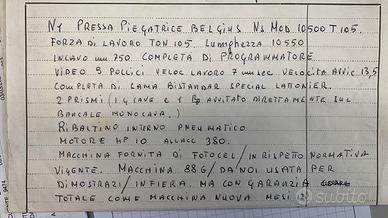 N1 PRESSA PIEGATRICE BELGIUS NS MOD. 10500 T 105.
FORZA DI LAVORO TON 105. LUNGHEZZA 10550
INCAVO mm 750 COMPLETA DI PROGRAMMATORE
VIDEO 9 POLLICI VELOC LAVORO 7 mm sec VELOCITA AVVIC 13,5
COMPLETA DI LAMA BISTANDAR SPECIAL LATONIER.
2 PRISMI (1 4 CAVE E 1 AVVITATO DIRETTAMENTE SUL
BANCALE MONOCAVA)
RIBALTINO INTERNO PNEUMATICO
MOTORE HP 10 ALLACC 380.
MACCHINA FORNITA DI FOTOCEL/IN RISPETTO NORMATIVA
VIGENTE. MACCHINA 88G/DA NOI USATA PER
DIMOSTRAZI/IN FIERA. MA CON GARANZIA
TOTALE COME MACCHINA NUOVA MESI
subito